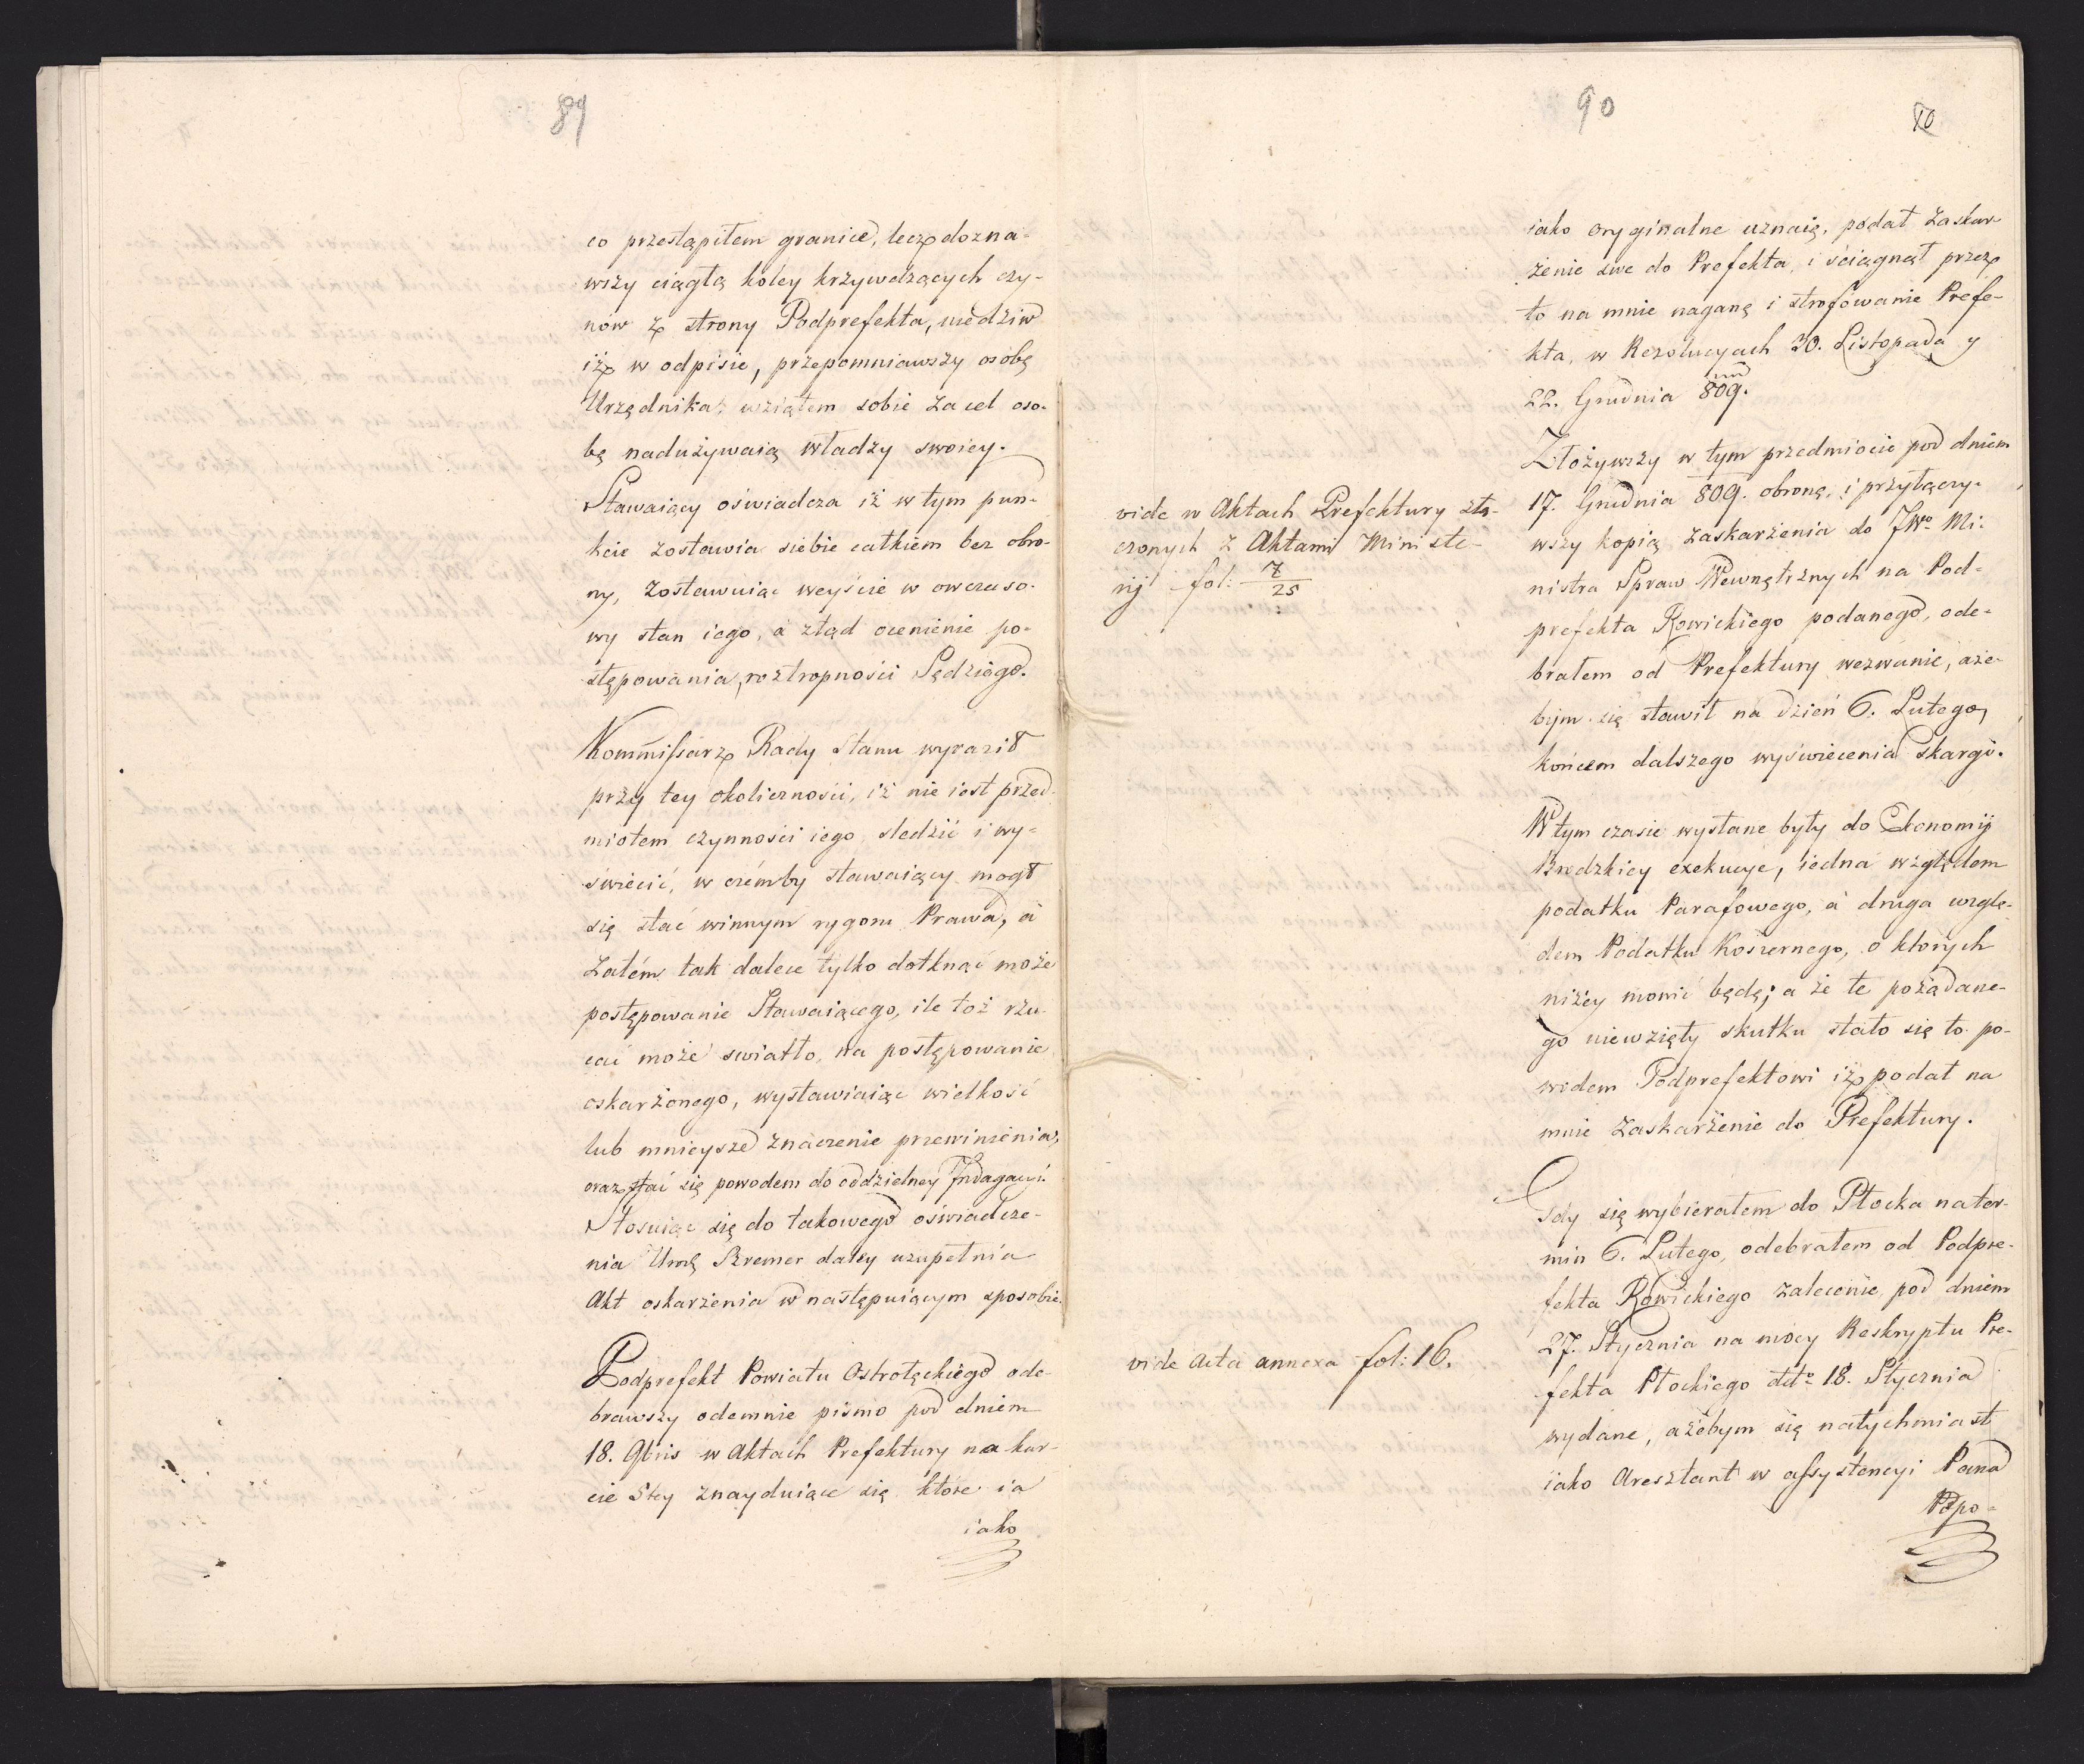 89
co przestąpiłem granice, lecz dozna-
wszy ciągłą koley krzywdzących czy-
nów z strony Podprefekta, niedziw
iż w odpisie, przepomniawszy osobę
Urzędnika, wziąłem sobie za cel oso-
bę nadużywaią władzy swoiey.
Stawaiący oświadcza iż w tym pun-
kcie zostawia siebie całkiem bez obro-
ny, zostawuiąc weyście w owczaso-
wy stan iego, a ztąd ocenienie po-
stępowania, roztropności Sędziego.
Kommissarz Rady Stanu wyraził
przy tey okoliczności, iż nie iest przed-
miotem czynności iego śledzić i wy-
świecić, w czémby stawaiący mogł
się stać winnym rygoru Prawa, à
zatém tak dalece tylko dotknąć może
postępowanie Stawaiącego, ile toż rzu-
cać może swiatło, na postępowanie
oskarżonego, wystawiaiąc wielkość
lub mnieysze znaczenie przewinienia,
oraz stać się powodem do oddzielney Indagacyi.
Stosuiąc się do takowego oświadcze-
nia Urodz Szremer daley uzupełnia
Akt oskarżenia w następuiącym sposobie.
Podprefekt Powiatu Ostrołęckiego ode-
brawszy odemnie pismo pod dniem
18. 9bris w Aktach Prefektury na kar-
cie 5tey znayduiące się które ia
iako
90
10
iako oryginalne uznaię, podał zaskar-
żenie swe do Prefekta, i ściągnął przez
to na mnie naganę i strofowanie Prefe-
kta, w Rezolucyach 30. Listopada y
22. Grudnia 809.
Złożywszy w tym przedmiocie pod dniem
17. Grudnia 809. obronę, i przyłączy-
wszy kopią zaskarżenia do JWo Mi-
nistra Spraw Wewnętrznych na Pod-
prefekta Rowickiego podanego, ode-
brałem od Prefektury wezwanie, aże-
bym się stawił na dzień 6. Lutego,
końcem dalszego wyświecenia skargi.
vide w Aktach Prefektury złą-
czonych z Aktami Ministe-
rij fol: 7/25
W tym czasie wysłane były do Ekonomij
Brodzkiey exekucye, iedna względem
podatku Parafowego, à druga wzglę-
dem Podatku Koszernego, o ktorych
niżey mowić będę; a że te pożądane-
go niewzięły skutku stało się to po-
wodem Podprefektowi iż podał na
mnie zaskarżenie do Prefektury.
Gdy się wybierałem do Płocka na ter-
min 6. Lutego, odebrałem od Podpre-
fekta Rowickiego zalecenie, pod dniem
27. Stycznia na mocy Reskryptu Pre-
fekta Płockiego ddto 18. Stycznia
wydane, ażebym się natychmiast
iako Aresztant w assystencyi Pana
Podpo-
vide acta annexa fol: 16.